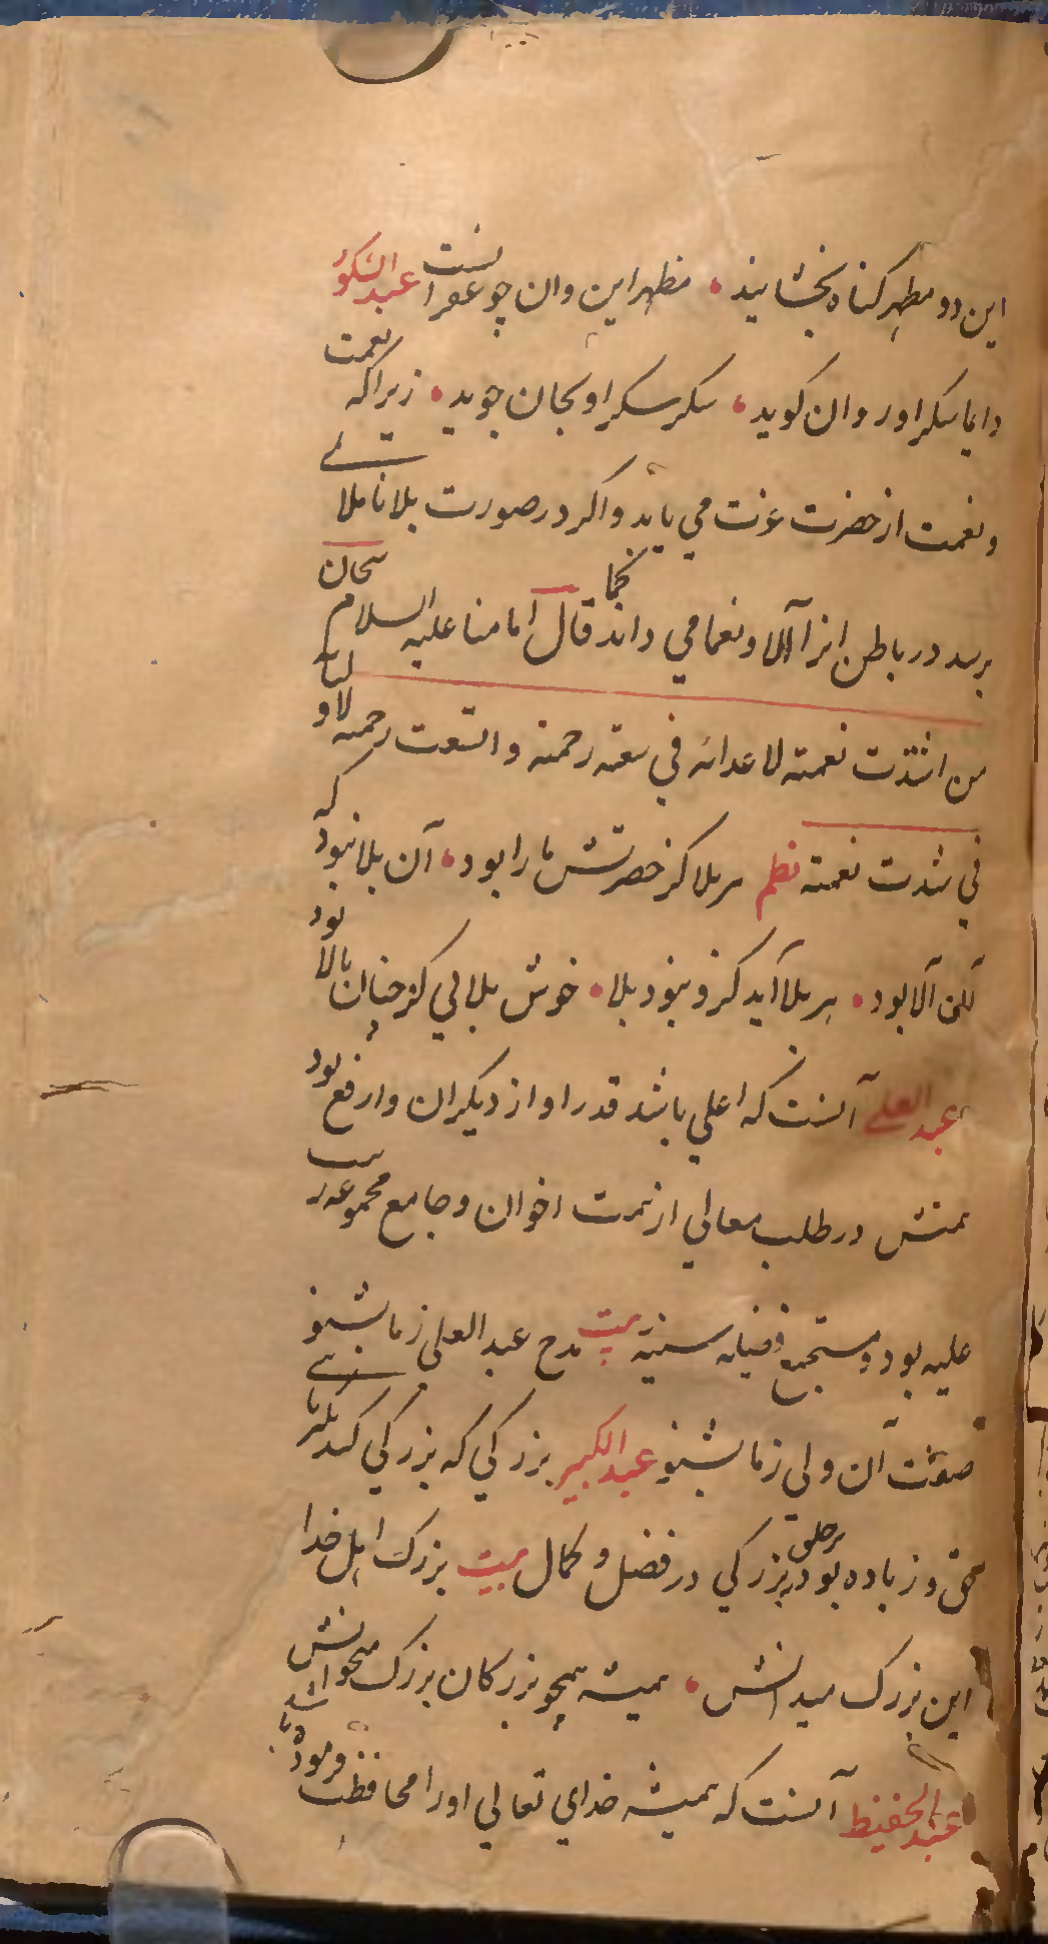 این دو مطهر کناه بخشایند مظهر این وان چو غفراست عبدالشکور
دایما شکر او روان کوید شکر شکر او بجان جوید زیرا که نعمت
ونعمت از حضرت عزت می یابد و اکر در صورت بلا نا ملایمی
برسد در باطن انرا آلا و نعما می داند کما قال امامنا علیه السلام سبحان
من اشتدت نعمته لاعدائه في سعة رحمته واتسعت رحمته لاولیائه
في شدت نعمته نظم هر بلا کز حضرتش ما را بود آن بلا نبود که
آن آلا بود هر بلا آید کزو نبود بلا خوش بلالی کز چنان بالا بود
عبد العلي آنست که اعلي باشد قدر او از دیکران و ارفع بود
همتش در طلب معالي از همت اخوان و جامع مجموعه مراتب
علیه بود و مستجمع فضایل سنیه بیت مدح عبد العلی ز ما بشنو
صفت آن ولی ز ما بشنو عبد الکبیر بزرکي که بزرکي کند
حق و زیاده بود بر خلق بزرکي در فضل و کمال بیت بزرک اهل خدا
این بزرک میدانش همیشه همچو بزرکان بزرک میخوانش
عبد الحفیظ آنست که همیشه خدای تعالي او را محافظت فرموده باشد